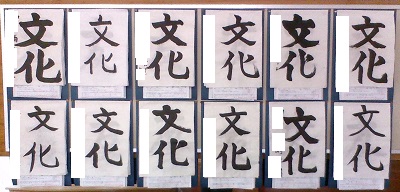 文化
文化
文化
文化
文化
文化
文化
文化
文化
文化
文化
文化